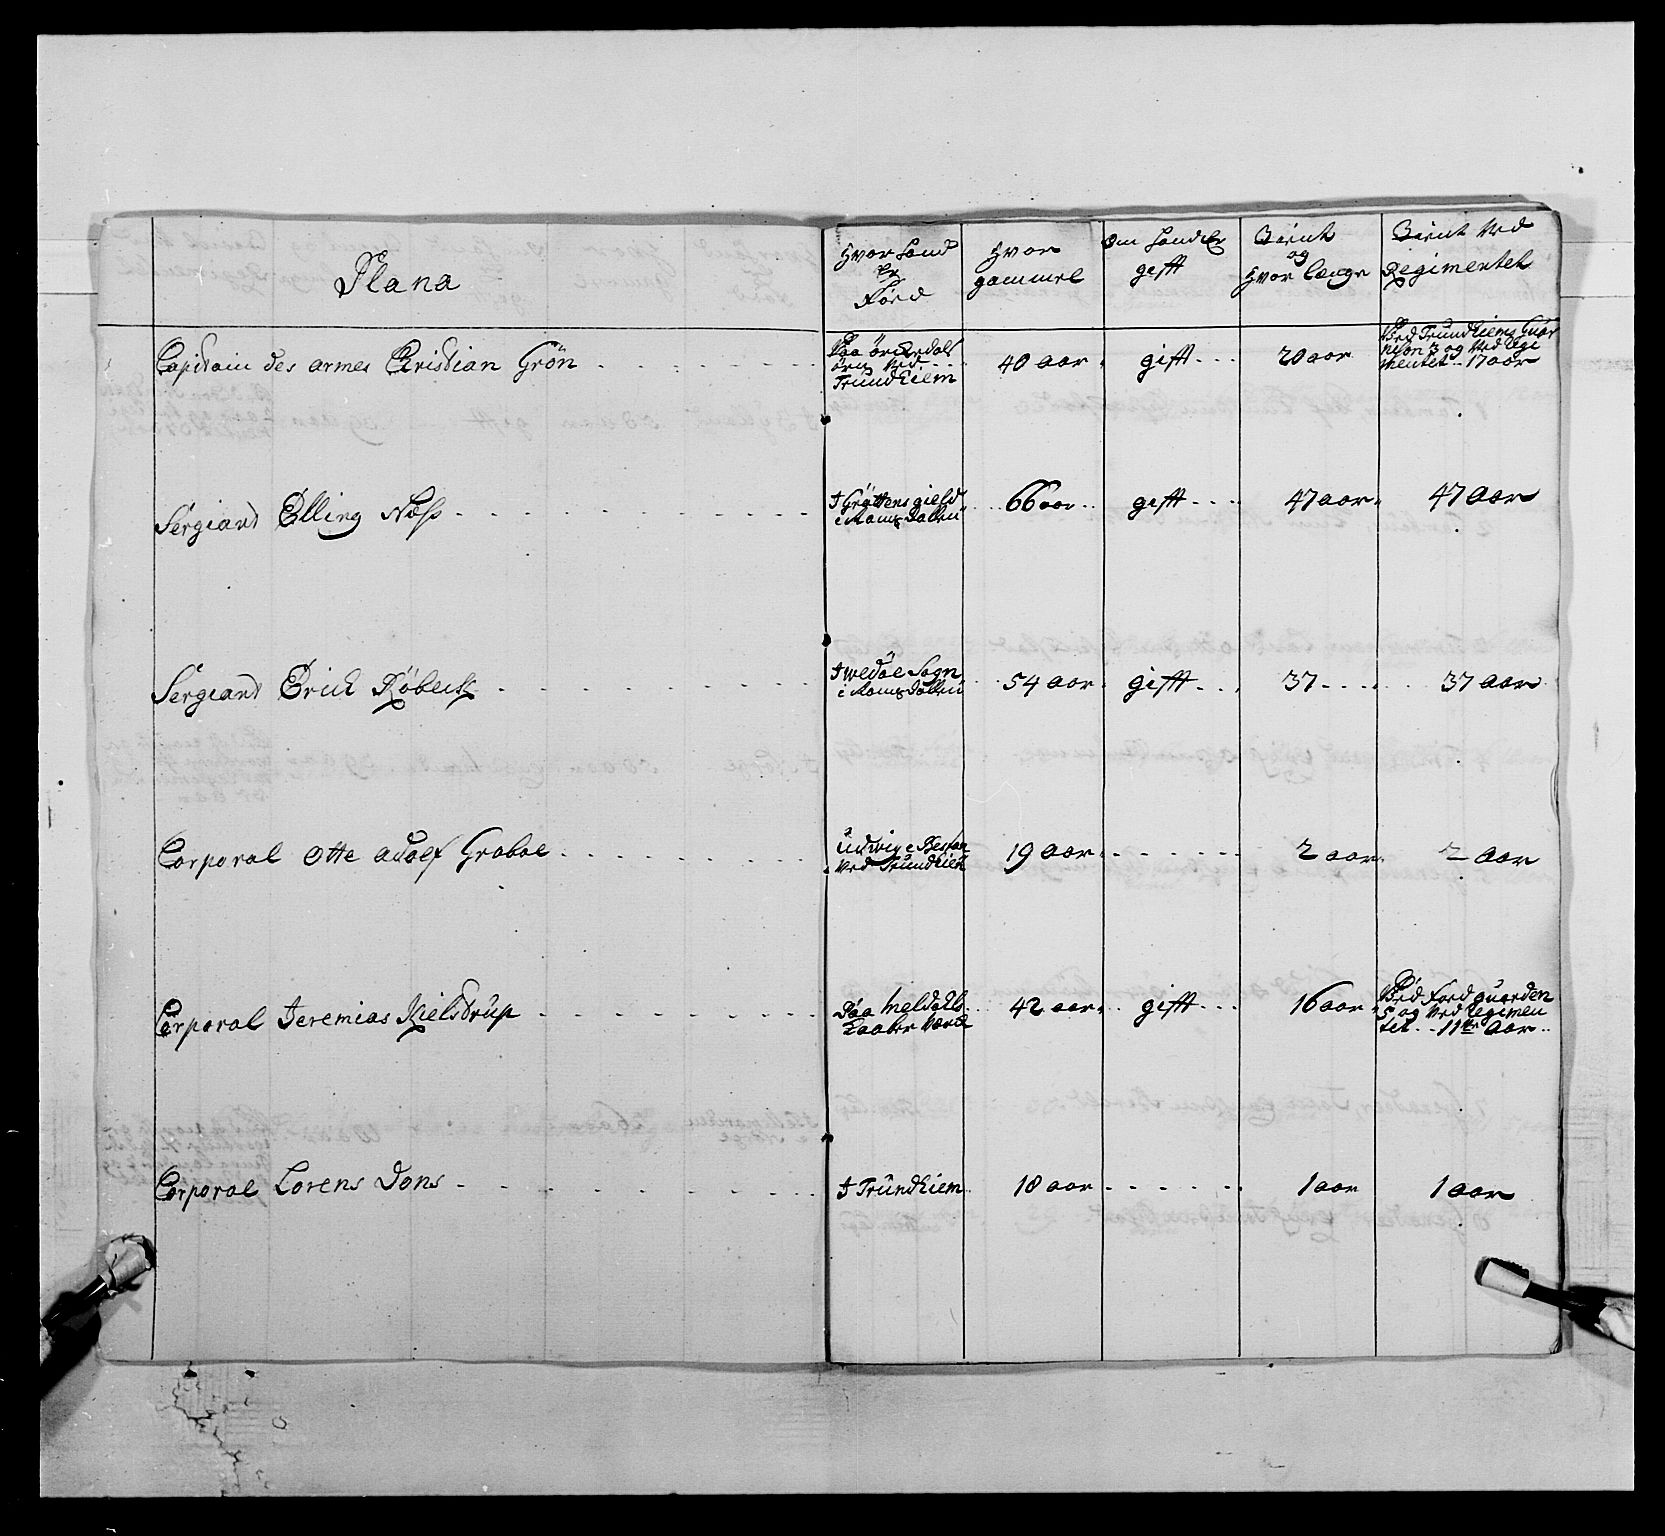 Plana
Hvor Hand
Er
Föed
Hvor
gammel
Om Hand Er
gifft
Tient
og
Hvor længe
Tient Ved
Regimentet
Capitain des armes Christian Grön
Paa Örchedals
ören Ved
Trundhiem
40 aar
gifft
20 aar
Ved Trundhiems Guar
nison 3 og Ved Regi
mentet 17 aar
Sergiant Elling Næss
I Gröttens gield
i Romsdallen
66 aar
gifft
47 aar
47 aar
Sergiant Erich Röbech
I Wedöe Sogn
i Romsdallen
54 aar
gifft
37
37 aar
Corporal Otte Adolf Graboe
Ved Trundhiem
19 aar
2 aar
2 aar
Corporal Jeremias Kielstrup
Paa Meldahls
Kaaber Værck
42 aar
gifft
16 aar
Ved Ford guarden
5 og Ved Regimen
tet 11 aar
Corporal Lorens Dons
I Trundhiem
18 aar
1 aar
1 aar